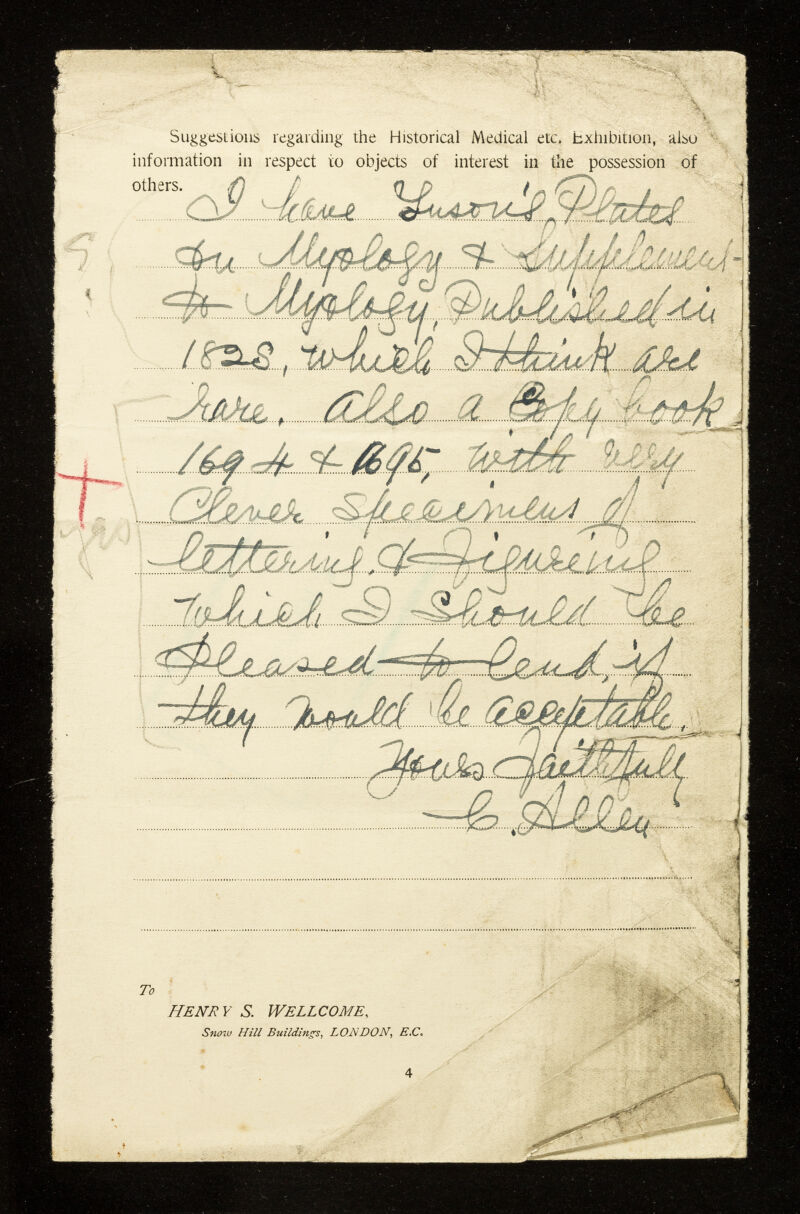 Suggestions regarding the Historical Medical etc. Exhibition, also
information in respect to objects of interest in the possession of
others.
I have Tuson's Plates
on Myology & Supplement
to Myology, Published in
1828, which I think are
rare. Also a Copy book
1694 & 1695, with very
Clever Specimens of
lettering, & Figureing
which I Should be
Pleased to lend, if
they would be acceptable.
Yours Faithfully
C. Allen
To
HENRY S. WELLCOME,
Snow Hill Buildings, LONDON, E.C.
4